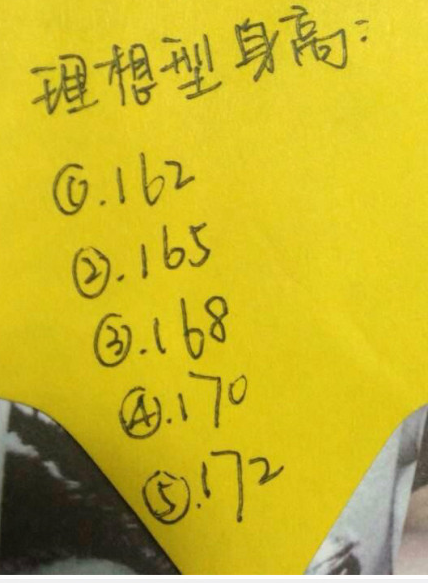 理想型身高:
①.162
②.165
③.168
④.170
⑤.172